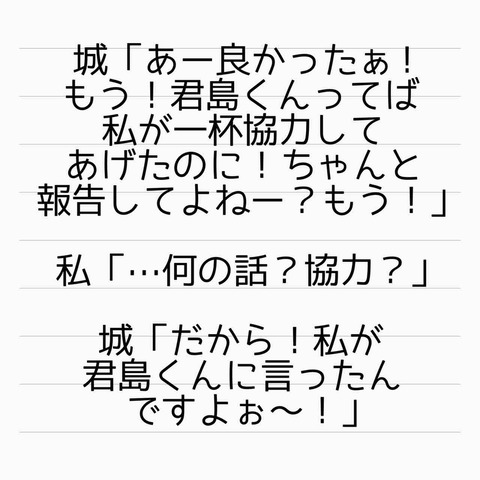 城「あー良かったぁ！
もう！君島くんってば
私が一杯協力して
あげたのに！ちゃんと
報告してよねー？もう！」
私「…何の話？協力？」
城「だから！私が
君島くんに言ったん
ですよぉ〜！」